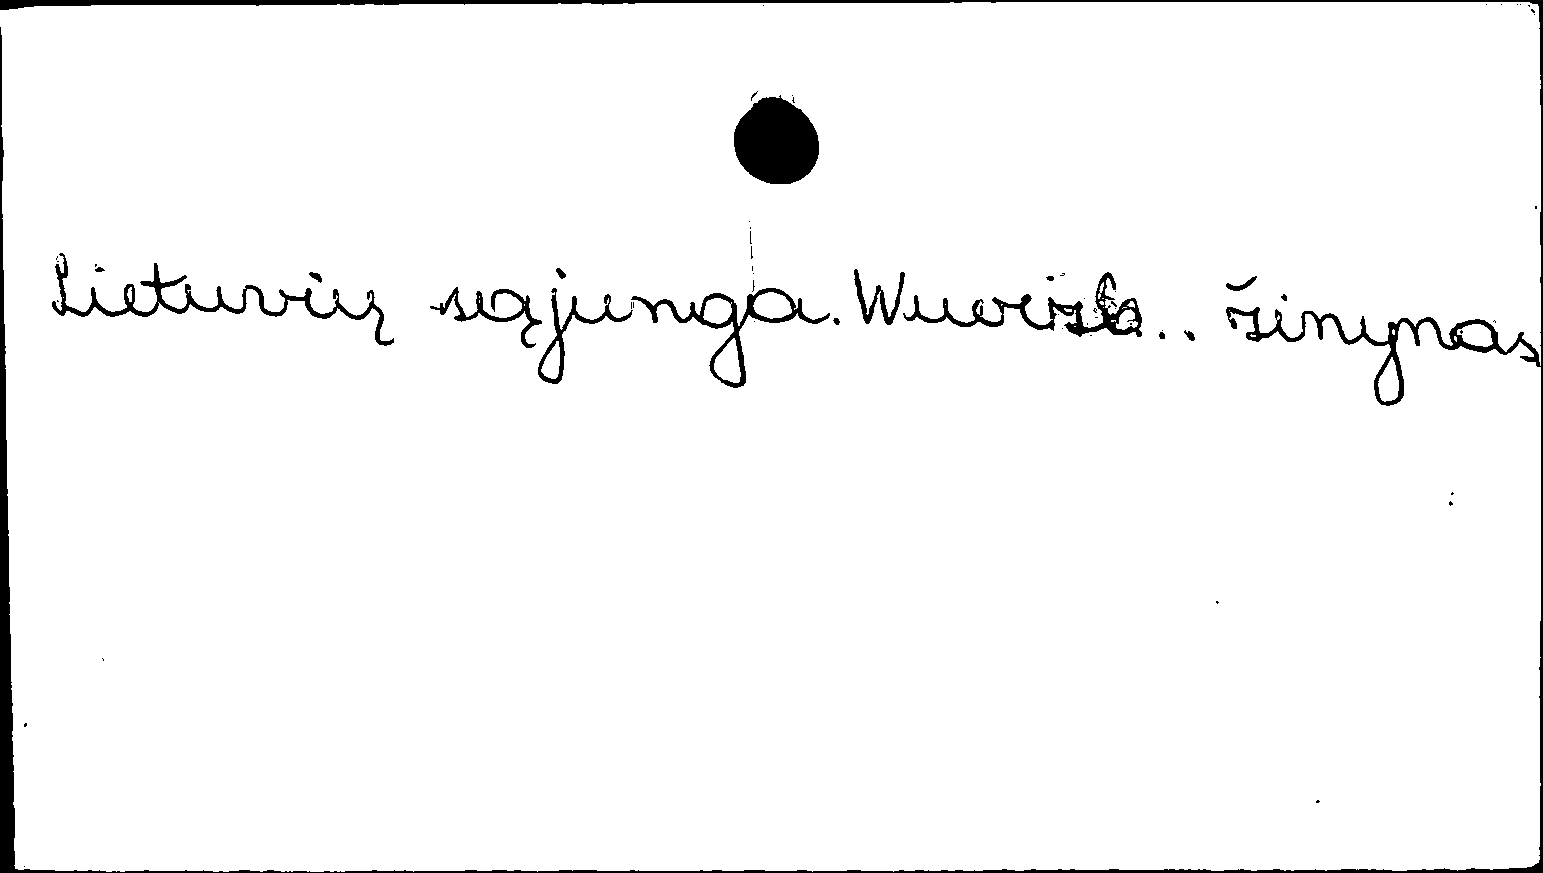 Lietuvių sąjunga. Wuorisk... žinynas